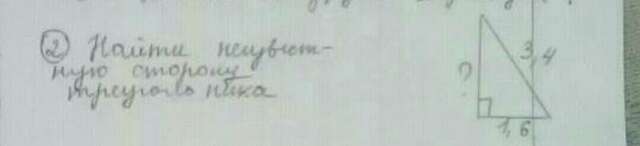 ② Найти неизвест-
ную сторону
треугольника
?
3,4
1,6